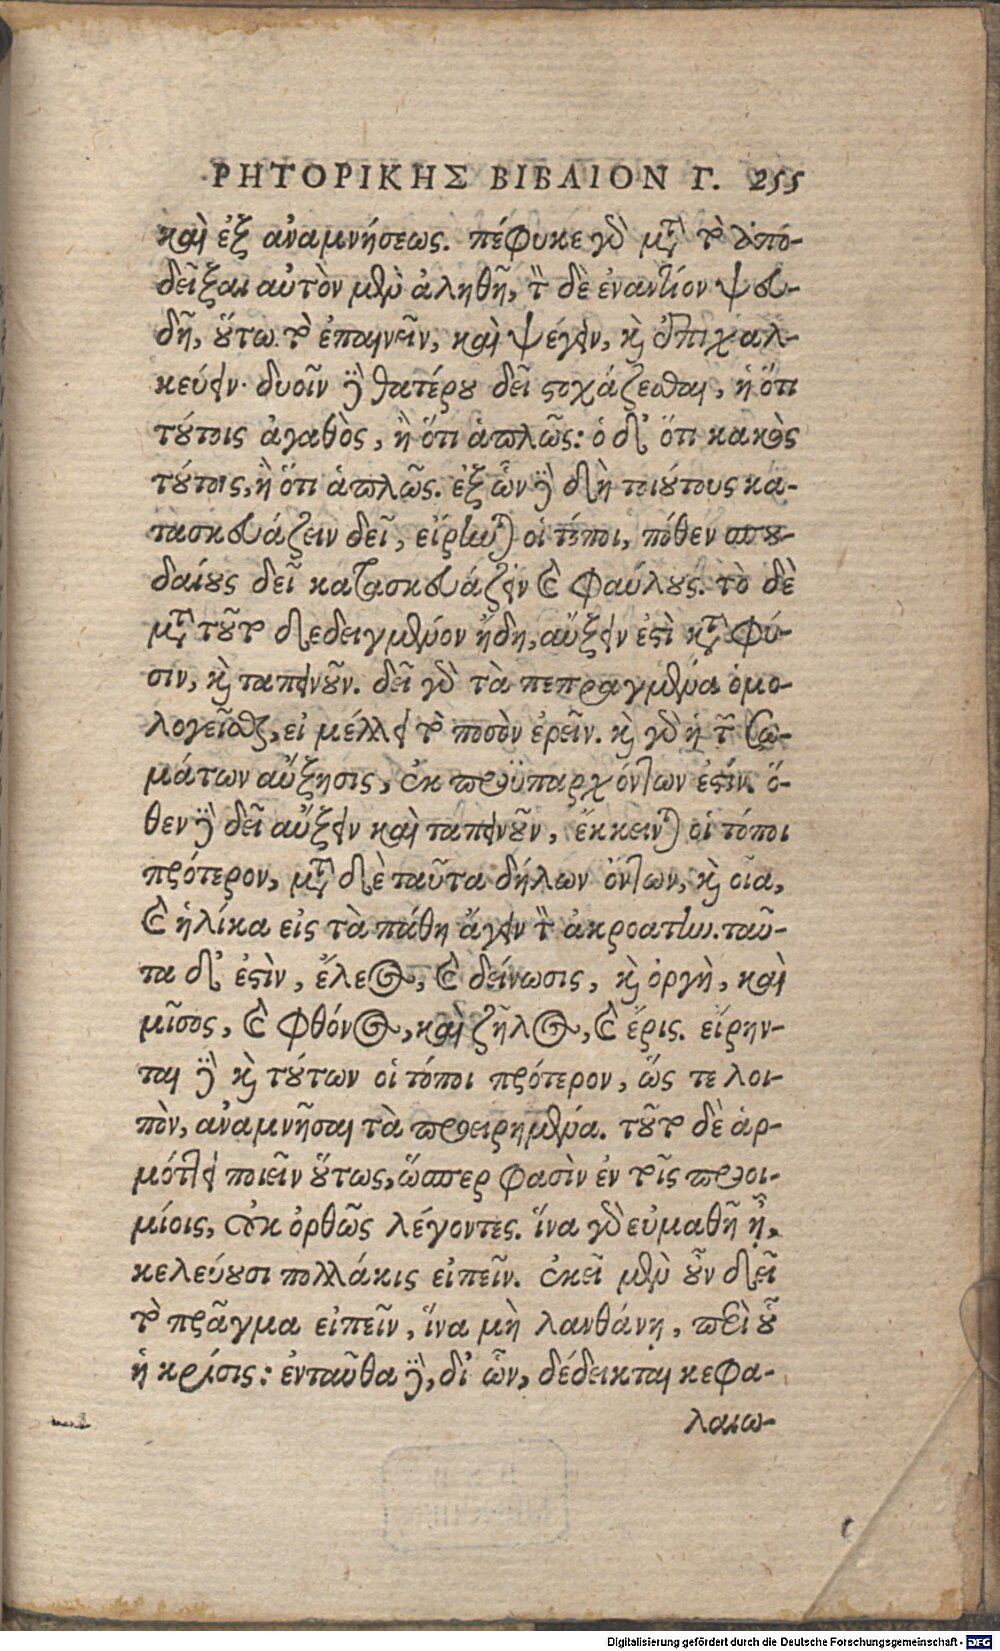 ΡΗΤΟΡΙΚΗΣ ΒΙΒΛΙΟΝ Γ. 255
καὶ ἐξ ἀναμνήσεως. πέφυκε γὸ μτ τὸ ἀπό-
δεῖξαι αὐτὸν μὲν ἀληθῆ, τ̀ δὲ ἐναντίον ψευ-
δῆ, ὅτω τὸ ἐπαινεῖν, καὶ ψέγειν, κ̀ ἐπιχαλ-
κεύειν. δυοῖν δὲ θατέρου δεῖ στοχάζεσθαι, ἢ ὅτι
τούτοις ἀγαθὸς, ἢ ὅτι ἁπλῶς: ὁ δ' ὅτι κακὸς
τούτοις, ἢ ὅτι ἁπλῶς. ἐξ ὧν δὲ δὴ τοιούτους κα-
τασκευάζειν δεῖ, εἴρηνται οἱ τόποι, πόθεν σπου-
δαίους δεῖ κατασκευάζειν καὶ φαύλους. τὸ δὲ
μετὰ τοῦτο δεδειγμένον ἤδη, αὔξειν ἐστὶ κατὰ φύ-
σιν, καὶ ταπεινοῦν. δεῖ γὰρ τὰ πεπραγμένα ὁμο-
λογεῖσθαι, εἰ μέλλει τὸ ποσὸν ἐρεῖν. καὶ γὰρ ἡ τῶν σω-
μάτων αὔξησις, ἐκ προϋπαρχόντων ἐστίν. ὅ-
θεν δὲ δεῖ αὔξειν καὶ ταπεινοῦν, ἔκκεινται οἱ τόποι
πρότερον, μετὰ δὲ ταῦτα δήλων ὄντων, καὶ οἷα,
καὶ ἡλίκα εἰς τὰ πάθη ἄγειν τὸν ἀκροατήν. ταῦ-
τα δ' ἐστὶν, ἔλεος, καὶ δείνωσις, καὶ ὀργὴ, καὶ
μῖσος, καὶ φθόνος, καὶ ζῆλος, καὶ ἔρις. εἴρην-
ται δὲ καὶ τούτων οἱ τόποι πρότερον, ὥς τε λοι-
πὸν, ἀναμνῆσαι τὰ προειρημένα. τοῦτο δὲ ἁρ-
μόττει ποιεῖν οὕτως, ὥσπερ φασὶν ἐν τοῖς προοι-
μίοις, οὐκ ὀρθῶς λέγοντες. ἵνα γὰρ εὐμαθῆ ᾖ,
κελεύουσι πολλάκις εἰπεῖν. ἐκεῖ μὲν οὖν δεῖ
τὸ πρᾶγμα εἰπεῖν, ἵνα μὴ λανθάνῃ, περὶ οὗ
ἡ κρίσις: ἐνταῦθα δὲ, δι' ὧν, δέδεικται κεφα-
λαιω-
Digitalisierung gefördert durch die Deutsche Forschungsgemeinschaft - DFG